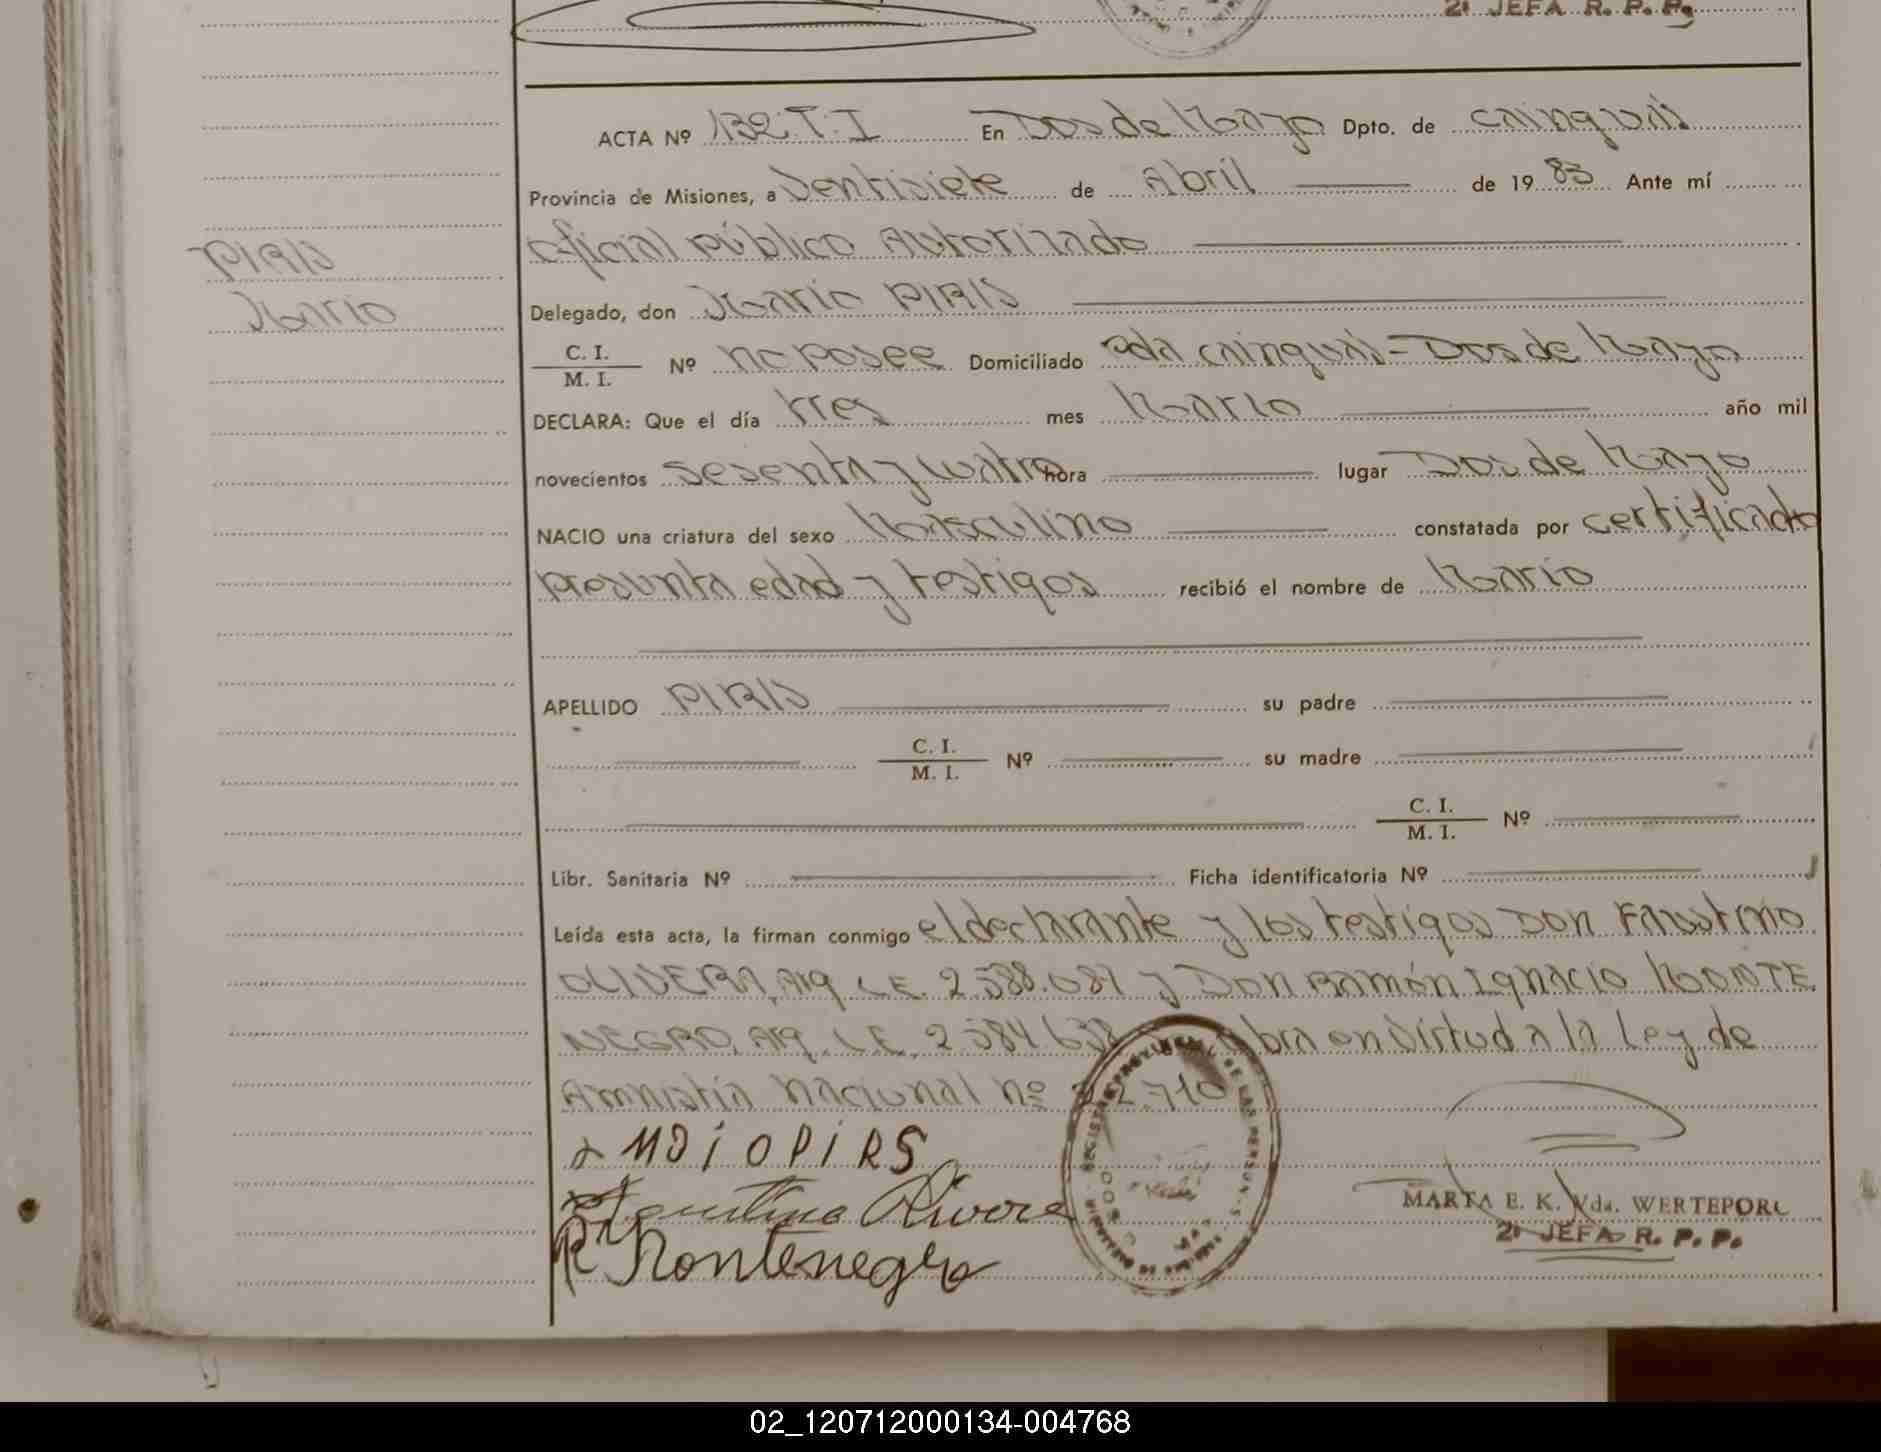 2º JEFA R. P. P.
ACTA Nº 132. T. I En Dos de Mayo Dpto. de cainguás
Provincia de Misiones, a Ventisiete de Abril de 1983 Ante mí
oficial público Autorizado
PIRIS
Mario
Delegado, don Mario PIRIS
C. I.
M. I. Nº no posee Domiciliado Pda cainguás - Dos de Mayo
DECLARA: Que el día tres mes Marzo año mil
novecientos sesenta y cuatro hora lugar Dos de Mayo
NACIO una criatura del sexo Masculino constatada por certificado
presunta edad y testigos recibió el nombre de Mario
APELLIDO PIRIS su padre
C. I.
M. I. Nº su madre
C. I.
M. I. Nº
Libr. Sanitaria Nº Ficha identificatoria Nº
Leída esta acta, la firman conmigo el declarante y los testigos Don Faustino
OLIVERA, Arg. L.E. 2.588.087 y Don Ramón Ignacio MONTE
NEGRO, Arg. L.E. 2 584 638 obra en Virtud a la Ley de
Amnistía Nacional nº 22.710
MOiO PiRS
R Montenegro
MARTA E. K. Vda. WERTEPORC
2º JEFA R. P. P.
02_120712000134-004768